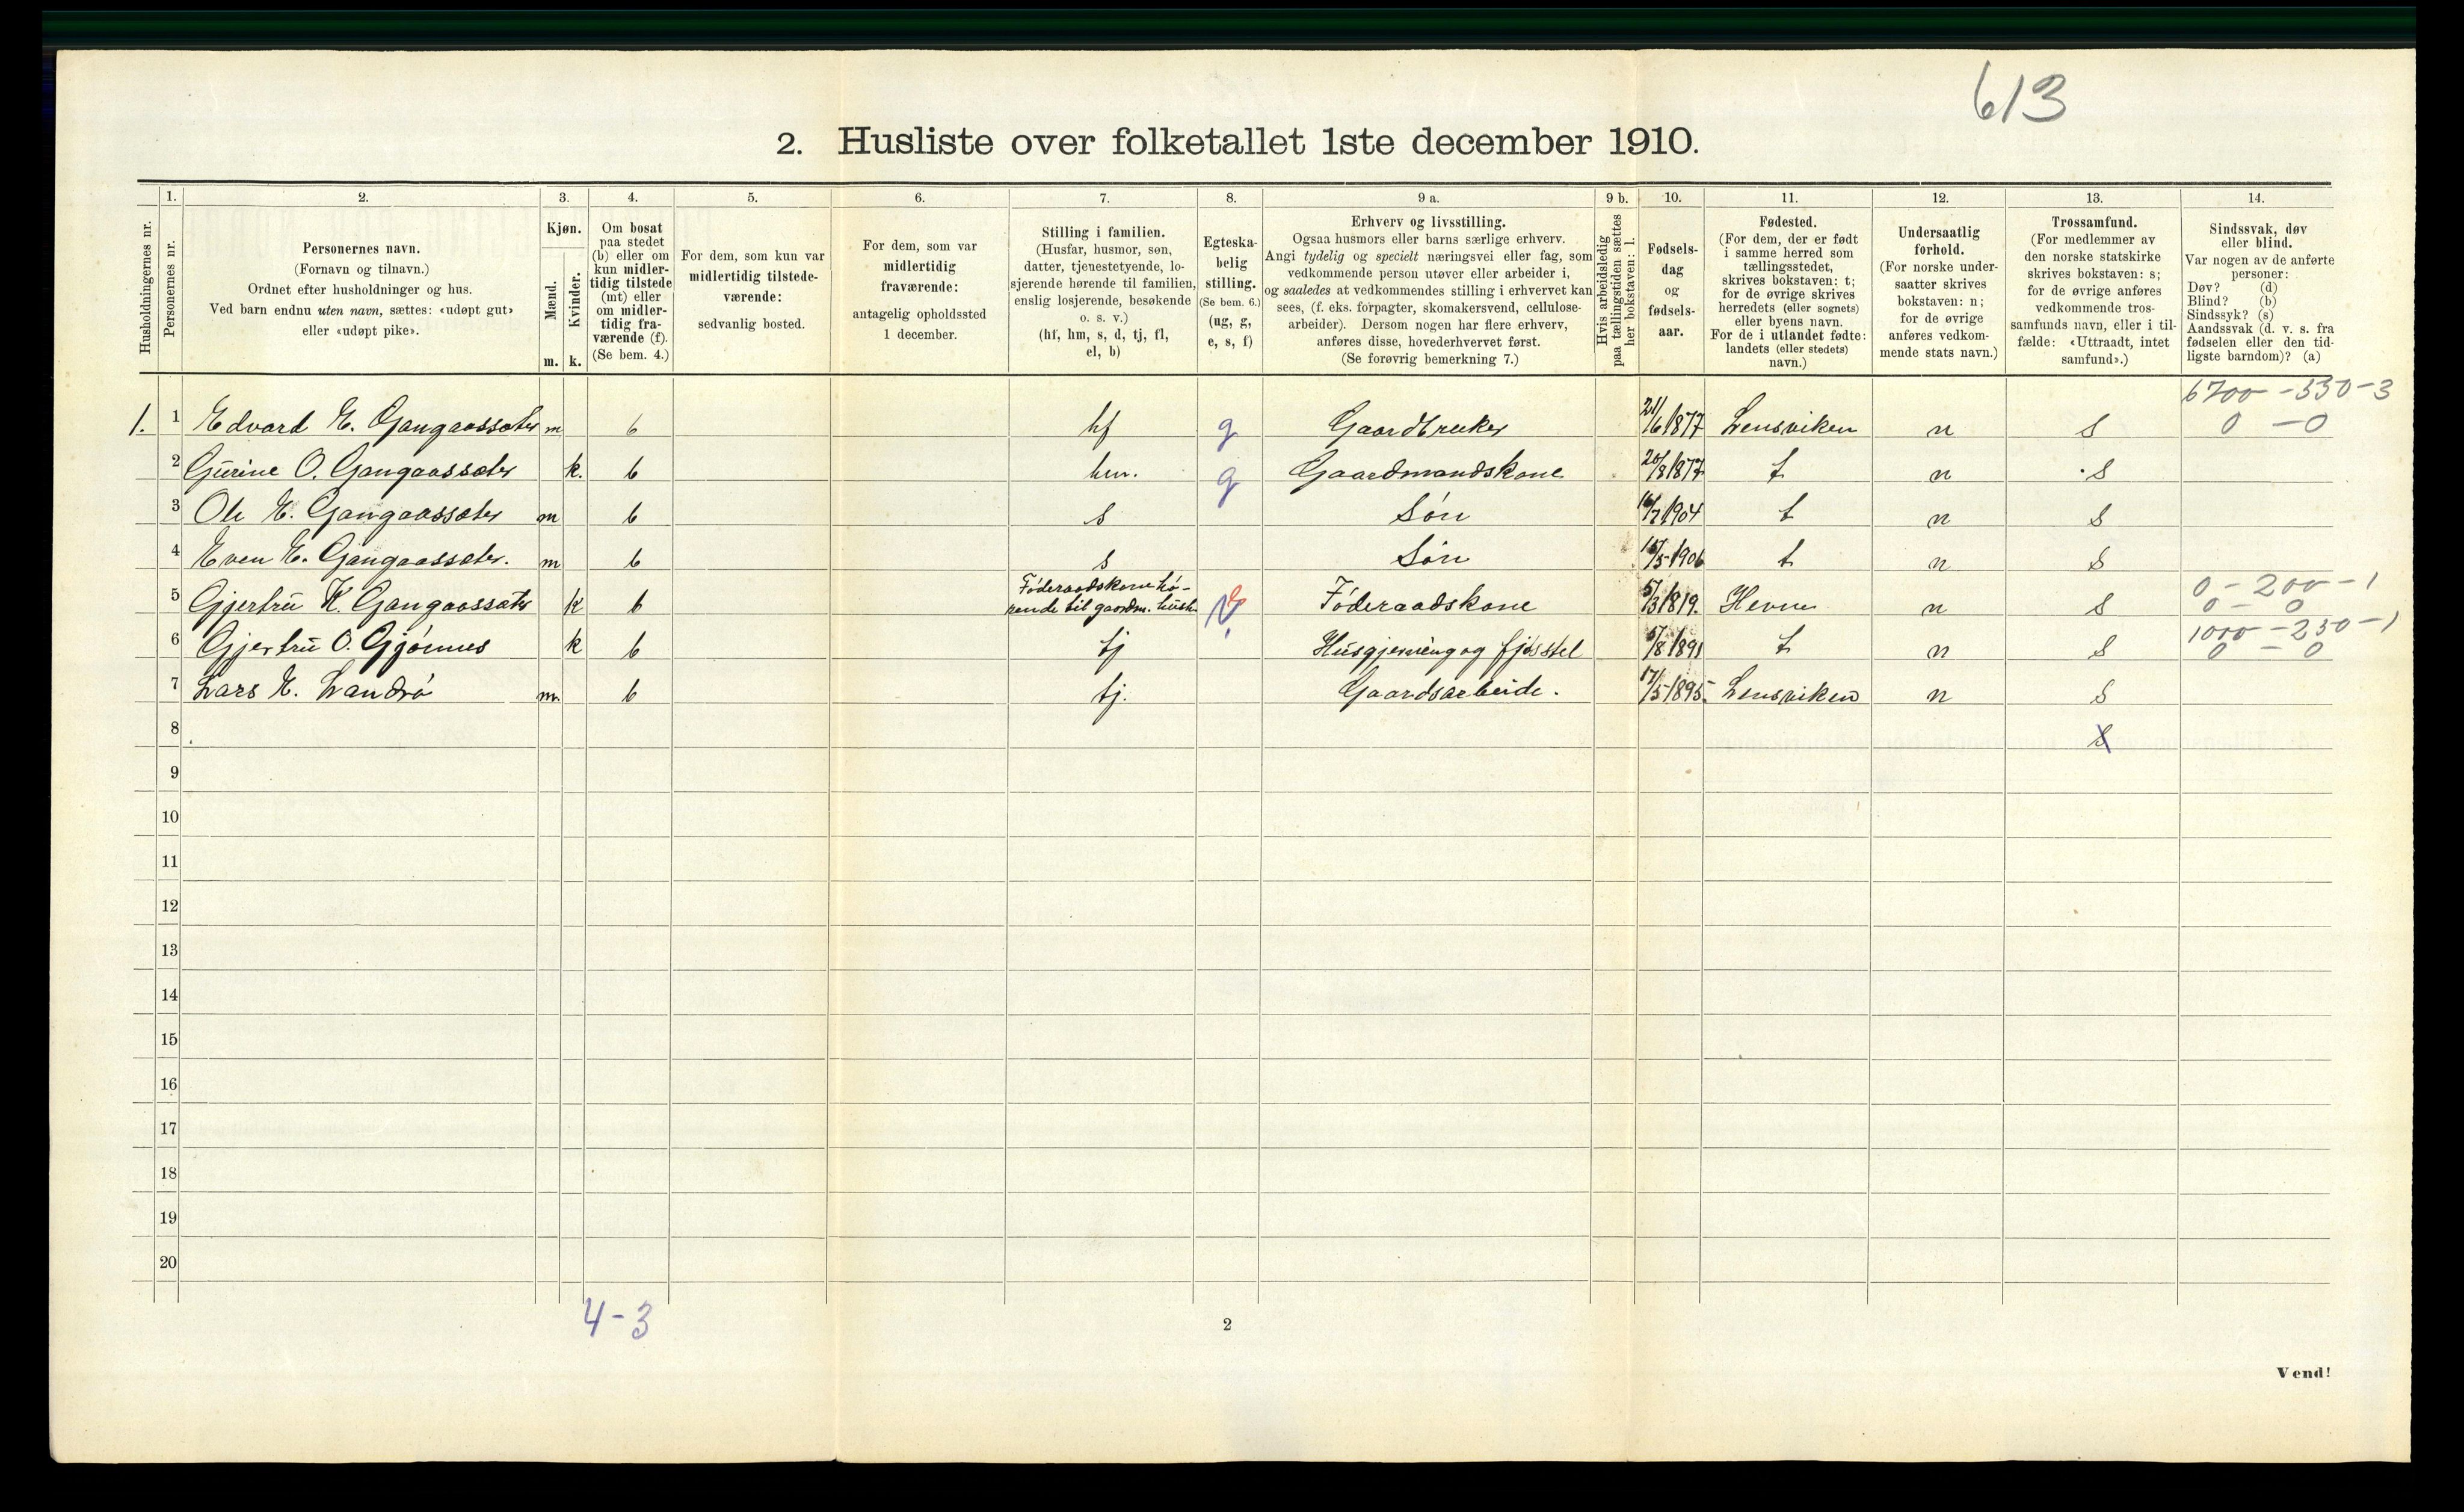 613
2. Husliste over folketallet 1ste december 1910.
Husholdningernes nr.
1. Personernes nr.
2. Personernes navn. (Fornavn og tilnavn.) Ordnet efter husholdninger og hus. Ved barn endnu uten navn, sættes: «udøpt gut» eller «udøpt pike».
3. Kjøn. Mænd. m. Kvinder. k.
4. Om bosat paa stedet (b) eller om kun midlertidig tilstede (mt) eller om midlertidig fraværende (f). (Se bem. 4.)
5. For dem, som kun var midlertidig tilstedeværende: sedvanlig bosted.
6. For dem, som var midlertidig fraværende: antagelig opholdssted 1 december.
7. Stilling i familien. (Husfar, husmor, søn, datter, tjenestetyende, losjerende hørende til familien, enslig losjerende, besøkende o. s. v.) (hf, hm, s, d, tj, fl, el, b)
8. Egteskabelig stilling. (Se bem. 6.) (ug, g, e, s, f)
9 a. Erhverv og livsstilling. Ogsaa husmors eller barns særlige erhverv. Angi tydelig og specielt næringsvei eller fag, som vedkommende person utøver eller arbeider i, og saaledes at vedkommendes stilling i erhvervet kan sees, (f. eks. forpagter, skomakersvend, cellulosearbeider). Dersom nogen har flere erhverv, anføres disse, hovederhvervet først. (Se forøvrig bemerkning 7.)
9 b. Hvis arbeidsledig paa tællingstiden sættes her bokstaven: l.
10. Fødselsdag og fødselsaar.
11. Fødested. (For dem, der er født i samme herred som tællingsstedet, skrives bokstaven: t; for de øvrige skrives herredets (eller sognets) eller byens navn. For de i utlandet fødte: landets (eller stedets) navn.)
12. Undersaatlig forhold. (For norske undersaatter skrives bokstaven: n; for de øvrige anføres vedkommende stats navn.)
13. Trossamfund. (For medlemmer av den norske statskirke skrives bokstaven: s; for de øvrige anføres vedkommende trossamfunds navn, eller i tilfælde: «Uttraadt, intet samfund».)
14. Sindssvak, døv eller blind. Var nogen av de anførte personer: Døv? (d) Blind? (b) Sindssyk? (s) Aandssvak (d. v. s. fra fødselen eller den tidligste barndom)? (a)
6700-330-3
1. 1 Edvard E. Gangaassæter m b hf g Gaardbruker 21/6 1877 Lensviken n s 0 - 0
2 Gurine O. Gangaassæter k. b hm. g Gaardmandskone 20/8 1877 t n s
3 Ole E. Gangaassæter m b s Søn 16/7 1904 t n s
4 Even E. Gangaassæter. m b s Søn 15/5 1906 t n s
5 Gjertru K. Gangaassæter k b Føderaadskone hørende til gaardm. hush. Føderaadskone 5/3 1819. Hevne n s 0-200-1 0-0
6 Gjertru O. Gjønnes k b tj Husgjerning og fjøsstel 5/8 1891 t n s 1000-250-1 0-0
7 Lars E. Landrø m. b tj. Gaardsarbeide. 17/5 1895. Lensviken n s
8 s
9
10
11
12
13
14
15
16
17
18
19
20
4-3
2
Vend!